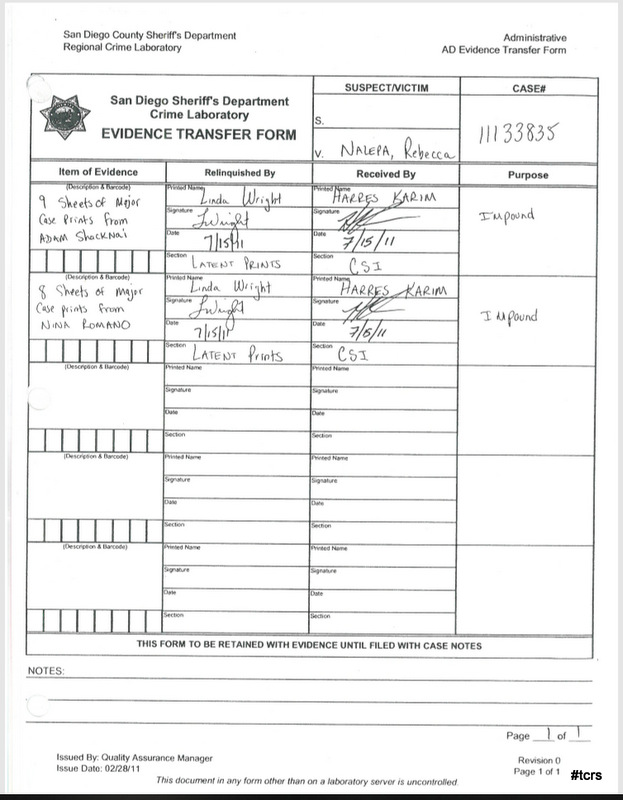 San Diego County Sheriff's Department
Regional Crime Laboratory
Administrative
AD Evidence Transfer Form
San Diego Sheriff's Department
Crime Laboratory
EVIDENCE TRANSFER FORM
SUSPECT/VICTIM
S.
V. NALEPA, Rebecca
CASE#
11133835
Item of Evidence Relinquished By Received By Purpose
(Description & Barcode)
9 Sheets of Major
Case Prints from
ADAM Shacknai
Printed Name
Linda Wright
Signature
LWright
Date
7/15/11
Section
LATENT PRINTS
Printed Name
HARRES KARIM
Signature
Date
7/15/11
Section
CSI
Impound
(Description & Barcode)
8 Sheets of Major
Case prints from
NINA ROMANO
Printed Name
Linda Wright
Signature
LWright
Date
7/15/11
Section
LATENT Prints
Printed Name
HARRES KARIM
Signature
Date
Section
CSI
Impound
(Description & Barcode)
Printed Name
Signature
Date
Section
Printed Name
Signature
Date
Section
(Description & Barcode)
Printed Name
Signature
Date
Section
Printed Name
Signature
Date
Section
(Description & Barcode)
Printed Name
Signature
Date
Section
Printed Name
Signature
Date
Section
THIS FORM TO BE RETAINED WITH EVIDENCE UNTIL FILED WITH CASE NOTES
NOTES:
Page 1 of 1
Issued By: Quality Assurance Manager
Issue Date: 02/28/11
Revision 0
Page 1 of 1
This document in any form other than on a laboratory server is uncontrolled.
#tcrs